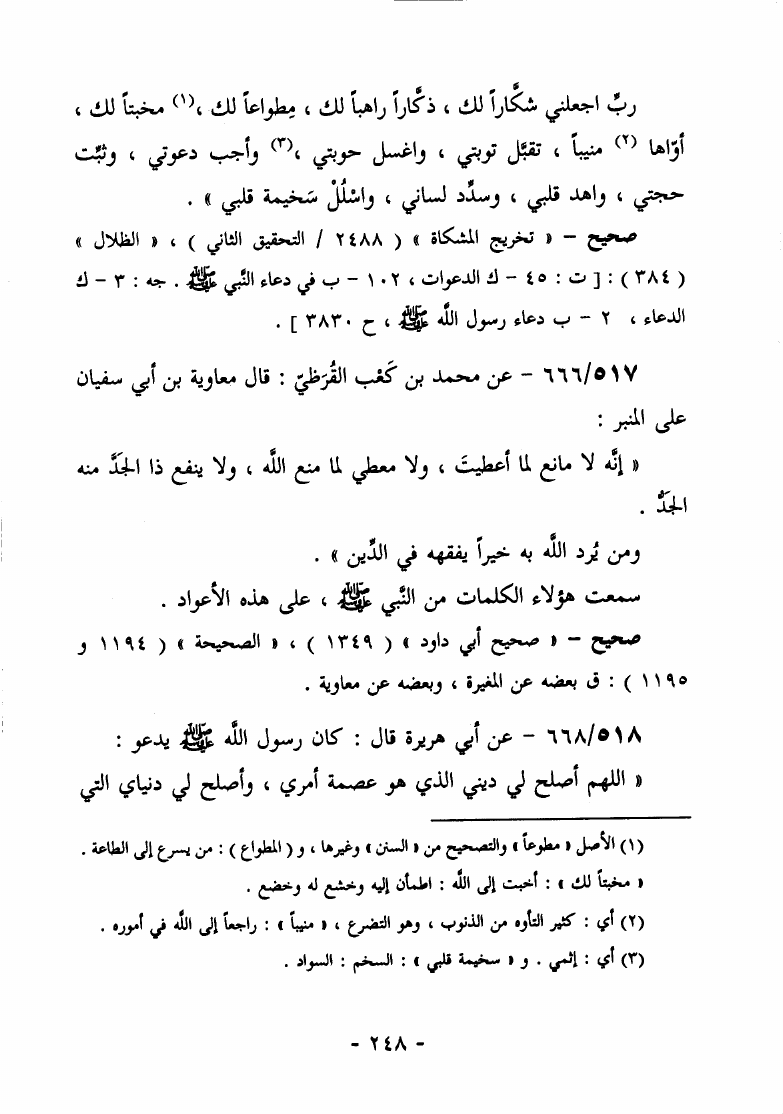 ربِّ اجعلني شكَّاراً لك ، ذكَّاراً راهباً لك ، مِطواعاً لك ،(١) مخبتاً لك ،
أوّاها (٢) منيباً ، تقبَّل توبتي ، واغسل حوبتي ،(٣) وأجب دعوتي ، وثبِّت
حجتي ، واهد قلبي ، وسدِّد لساني ، واسْلُلْ سَخيمة قلبي » .
صحيح – « تخريج المشكاة » ( ٢٤٨٨ / التحقيق الثاني ) ، « الظلال »
( ٣٨٤ ) : [ ت : ٤٥ – ك الدعوات ، ١٠٢ – ب في دعاء النَّبي ﷺ . جه : ٣ – ك
الدعاء ، ٢ – ب دعاء رسول اللَّه ﷺ ، ح ٣٨٣٠ ] .
٦٦٦/٥١٧ – عن محمد بن كَعْب القُرَظيّ : قال معاوية بن أبي سفيان
على المنبر :
« إنَّه لا مانع لما أعطيتَ ، ولا معطي لما منع اللَّه ، ولا ينفع ذا الجَدَّ منه
الجَدُّ .
ومن يُرد اللَّه به خيراً يفقهه في الدِّين » .
سمعت هؤلاء الكلمات من النَّبي ﷺ ، على هذه الأعواد .
صحيح – « صحيح أبي داود » ( ١٣٤٩ ) ، « الصحيحة » ( ١١٩٤ و
١١٩٥ ) : ق بعضه عن المغيرة ، وبعضه عن معاوية .
٦٦٨/٥١٨ – عن أبي هريرة قال : كان رسول اللَّه ﷺ يدعو :
« اللهم أصلح لي ديني الذي هو عصمة أمري ، وأصلح لي دنياي التي
(١) الأصل « مطوعاً » والتصحيح من « السنن » وغيرها ، و ( المطواع ) : من يسرع إلى الطاعة .
« مخبتاً لك » : أخبت إلى اللَّه : اطمأن إليه وخشع له وخضع .
(٢) أي : كثير التأوه من الذنوب ، وهو التضرع ، « منيباً » : راجعاً إلى اللَّه في أموره .
(٣) أي : إثمي . و « سخيمة قلبي » : السخم : السواد .
- ٢٤٨ -